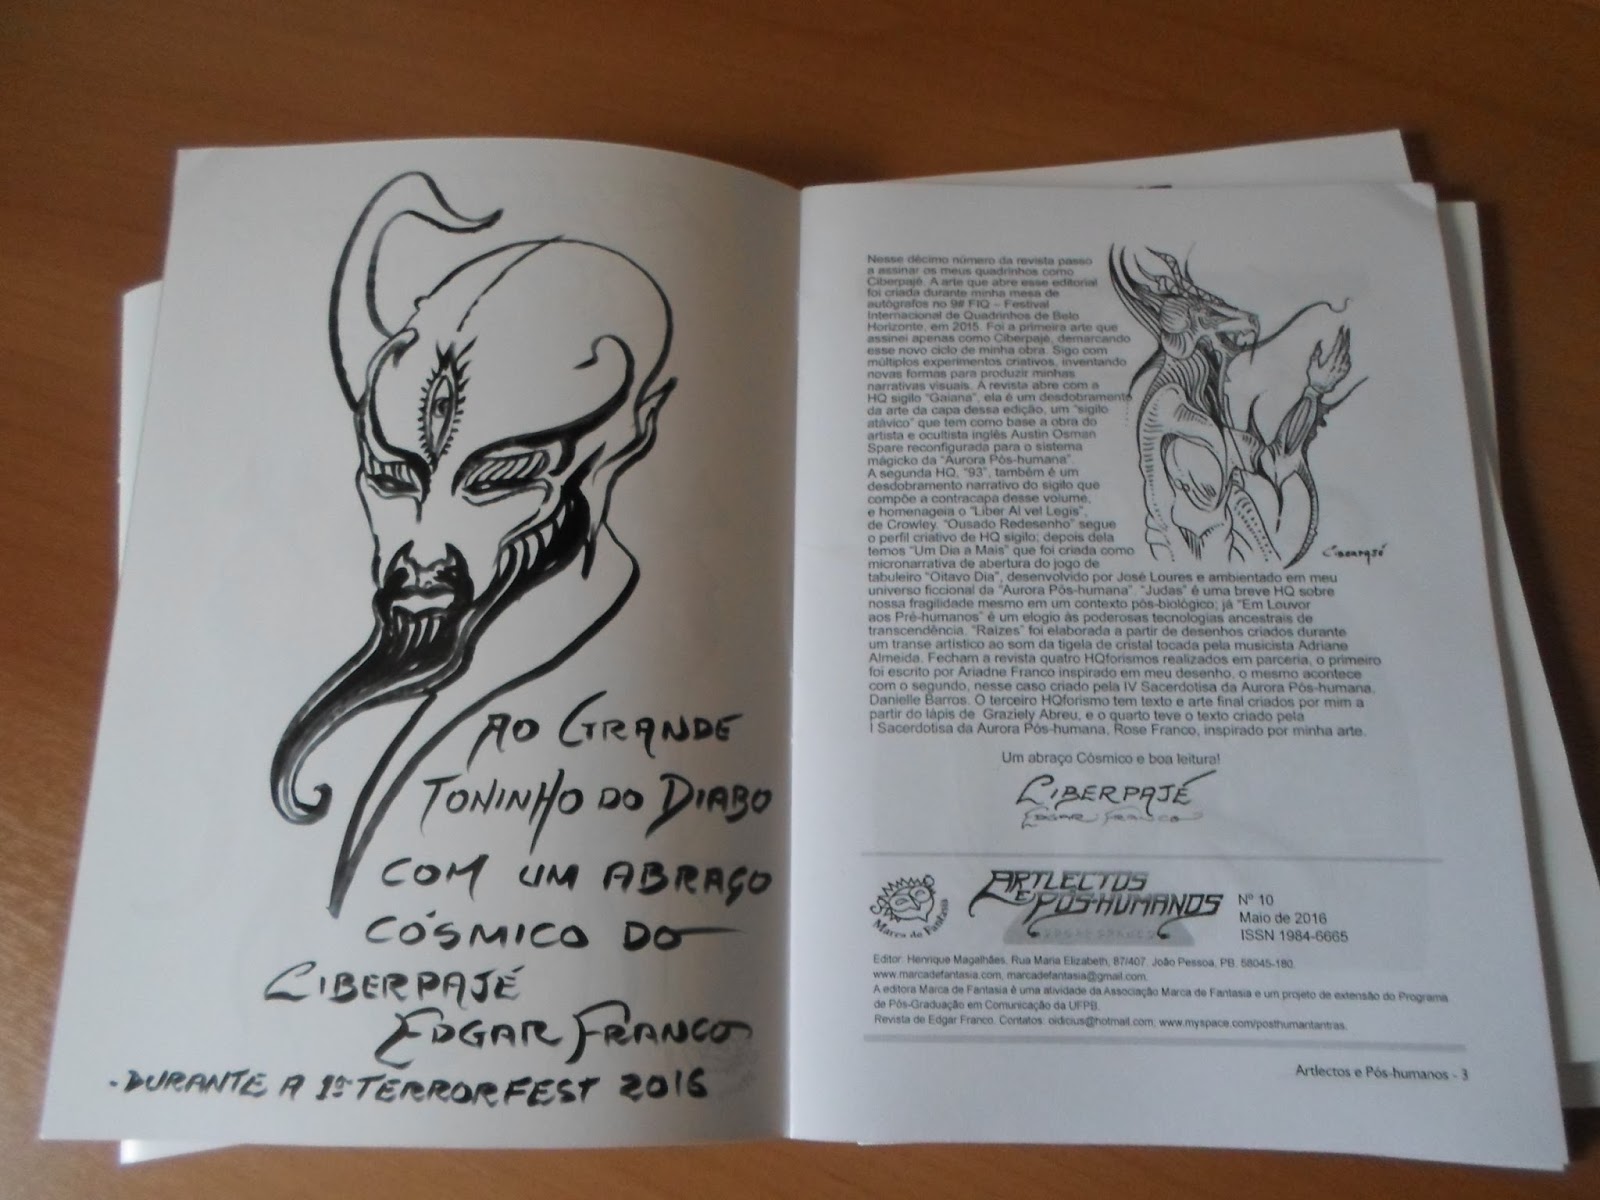 AO GRANDE
TONINHO DO DIABO
COM UM ABRAÇO
CÓSMICO DO
CIBERPAJÉ
EDGAR FRANCO
- DURANTE A 1ª TERRORFEST 2016
Nesse décimo número da revista passo
a assinar os meus quadrinhos como
Ciberpajé. A arte que abre esse editorial
foi criada durante minha mesa de
autógrafos no 9# FIQ – Festival
Internacional de Quadrinhos de Belo
Horizonte, em 2015. Foi a primeira arte que
assinei apenas como Ciberpajé, demarcando
esse novo ciclo de minha obra. Sigo com
múltiplos experimentos criativos, inventando
novas formas para produzir minhas
narrativas visuais. A revista abre com a
HQ sigilo "Gaiana", ela é um desdobramento
da arte da capa dessa edição, um "sigilo
atávico" que tem como base a obra do
artista e ocultista inglês Austin Osman
Spare reconfigurada para o sistema
mágicko da "Aurora Pós-humana".
A segunda HQ, "93", também é um
desdobramento narrativo do sigilo que
compõe a contracapa desse volume,
e homenageia o "Liber Al vel Legis",
de Crowley. "Ousado Redesenho" segue
o perfil criativo de HQ sigilo; depois dela
temos "Um Dia a Mais" que foi criada como
micronarrativa de abertura do jogo de
tabuleiro "Oitavo Dia", desenvolvido por José Loures e ambientado em meu
universo ficcional da "Aurora Pós-humana". "Judas" é uma breve HQ sobre
nossa fragilidade mesmo em um contexto pós-biológico; já "Em Louvor
aos Pré-humanos" é um elogio às poderosas tecnologias ancestrais de
transcendência. "Raízes" foi elaborada a partir de desenhos criados durante
um transe artístico ao som da tigela de cristal tocada pela musicista Adriane
Almeida. Fecham a revista quatro HQforismos realizados em parceria, o primeiro
foi escrito por Ariadne Franco inspirado em meu desenho, o mesmo acontece
com o segundo, nesse caso criado pela IV Sacerdotisa da Aurora Pós-humana,
Danielle Barros. O terceiro HQforismo tem texto e arte final criados por mim a
partir do lápis de Graziely Abreu, e o quarto teve o texto criado pela
I Sacerdotisa da Aurora Pós-humana, Rose Franco, inspirado por minha arte.
Ciberpajé
Um abraço Cósmico e boa leitura!
CIBERPAJÉ
EDGAR FRANCO
Marca de Fantasia
ARTLECTOS
E PÓS-HUMANOS
EDGAR FRANCO
Nº 10
Maio de 2016
ISSN 1984-6665
Editor: Henrique Magalhães. Rua Maria Elizabeth, 87/407. João Pessoa, PB. 58045-180.
www.marcadefantasia.com, marcadefantasia@gmail.com.
A editora Marca de Fantasia é uma atividade da Associação Marca de Fantasia e um projeto de extensão do Programa
de Pós-Graduação em Comunicação da UFPB.
Revista de Edgar Franco. Contatos: oidicius@hotmail.com; www.myspace.com/posthumantantras.
Artlectos e Pós-humanos - 3